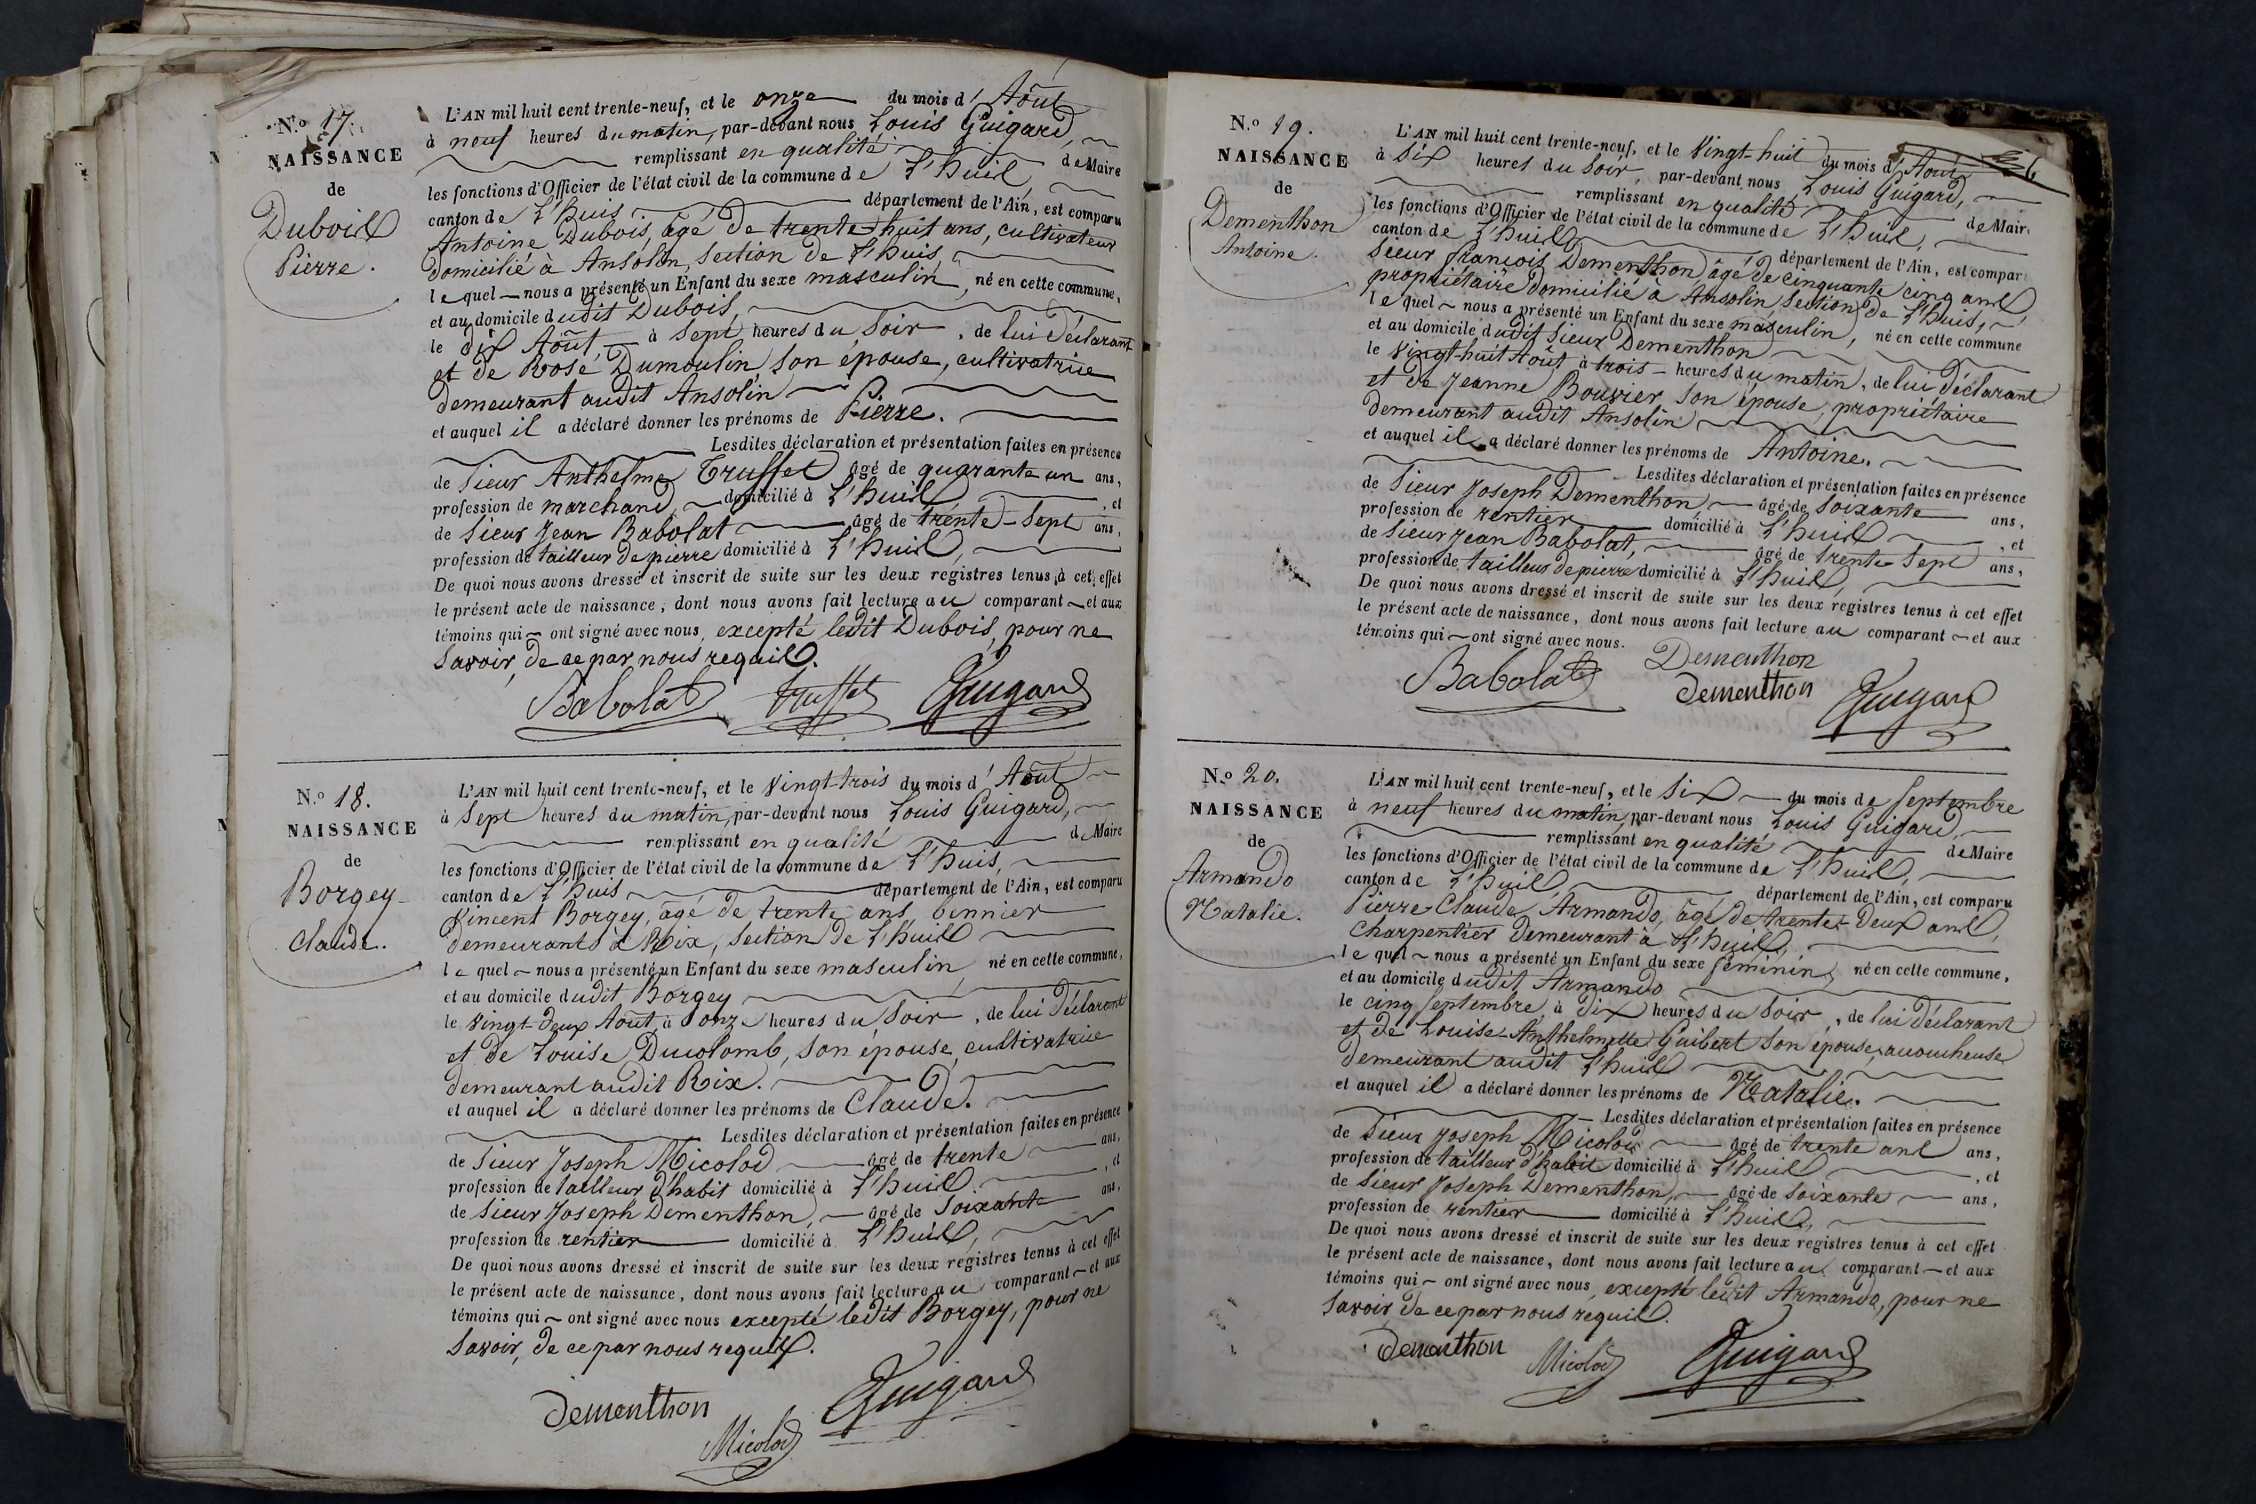 N.o 17.
NAISSANCE
de
Dubois
Pierre.
L'AN mil huit cent trente-neuf, et le onze du mois d'Août
à neuf heures du matin, par-devant nous Louis Guigard,
remplissant en qualité de Maire
les fonctions d'Officier de l'état civil de la commune de L'huis
canton de L'huis département de l'Ain, est comparu
Antoine Dubois, âgé de trente-huit ans, cultivateur
domicilié à Ansolin, section de L'huis,
lequel nous a présenté un Enfant du sexe masculin, né en cette commune,
et au domicile dudit Dubois,
le dix Août à sept heures du soir, de lui déclarant
et de Rose Dumoulin, son épouse, cultivatrice
demeurant audit Ansolin
et auquel il a déclaré donner les prénoms de Pierre.
Lesdites déclaration et présentation faites en présence
de sieur Anthelme Truffet âgé de quarante un ans,
profession de marchand, domicilié à L'huis, et
de sieur Jean Babolat âgé de trente-sept ans,
profession de tailleur de pierre domicilié à L'huis,
De quoi nous avons dressé et inscrit de suite sur les deux registres tenus à cet effet
le présent acte de naissance, dont nous avons fait lecture au comparant et aux
témoins qui ont signé avec nous, excepté ledit Dubois, pour ne
savoir, de ce par nous requis.
Babolat Truffet Guigard
N.o 18.
NAISSANCE
de
Borgey
Claude.
L'AN mil huit cent trente-neuf, et le vingt-trois du mois d'Août
à sept heures du matin, par-devant nous Louis Guigard,
remplissant en qualité de Maire
les fonctions d'Officier de l'état civil de la commune de L'huis,
canton de L'huis département de l'Ain, est comparu
Vincent Borgey, âgé de trente ans,
demeurant à Rix, section de L'huis
lequel nous a présenté un Enfant du sexe masculin, né en cette commune,
et au domicile dudit Borgey
le vingt-deux Août à onze heures du soir, de lui déclarant
et de Louise Ducolomb, son épouse, cultivatrice
demeurant audit Rix.
et auquel il a déclaré donner les prénoms de Claude.
Lesdites déclaration et présentation faites en présence
de sieur Joseph Micolod âgé de trente ans,
profession de tailleur d'habit domicilié à L'huis, et
de sieur Joseph Dementhon, âgé de soixante ans,
profession de rentier domicilié à L'huis,
De quoi nous avons dressé et inscrit de suite sur les deux registres tenus à cet effet
le présent acte de naissance, dont nous avons fait lecture au comparant et aux
témoins qui ont signé avec nous excepté ledit Borgey, pour ne
savoir, de ce par nous requis.
Dementhon Micolod Guigard
N.o 19.
NAISSANCE
de
Dementhon
Antoine.
L'AN mil huit cent trente-neuf, et le vingt-huit du mois d'Août
à six heures du soir, par-devant nous Louis Guigard,
remplissant en qualité de Maire
les fonctions d'Officier de l'état civil de la commune de L'huis,
canton de L'huis département de l'Ain, est comparu
sieur françois Dementhon âgé de cinquante cinq ans
propriétaire domicilié à Ansolin, section de L'huis,
lequel nous a présenté un Enfant du sexe masculin, né en cette commune
et au domicile dudit sieur Dementhon
le vingt-huit Août à trois heures du matin, de lui déclarant
et de Jeanne Bouvier son épouse, propriétaire
demeurant audit Ansolin
et auquel il a déclaré donner les prénoms de Antoine.
Lesdites déclaration et présentation faites en présence
de sieur Joseph Dementhon, âgé de soixante ans,
profession de rentier domicilié à L'huis, et
de sieur Jean Babolat, âgé de trente sept ans,
profession de tailleur de pierre domicilié à L'huis,
De quoi nous avons dressé et inscrit de suite sur les deux registres tenus à cet effet
le présent acte de naissance, dont nous avons fait lecture au comparant et aux
témoins qui ont signé avec nous.
Babolat Dementhon
Dementhon Guigard
N.o 20.
NAISSANCE
de
Armando
Natalie.
L'AN mil huit cent trente-neuf, et le six du mois de septembre
à neuf heures du matin, par-devant nous Louis Guigard,
remplissant en qualité de Maire
les fonctions d'Officier de l'état civil de la commune de L'huis,
canton de L'huis, département de l'Ain, est comparu
Pierre Claude Armando, âgé de trente-deux ans,
charpentier demeurant à L'huis,
lequel nous a présenté un Enfant du sexe féminin, né en cette commune,
et au domicile dudit Armando
le cinq septembre, à dix heures du soir, de lui déclarant
et de Louise Anthelmette Guibert son épouse, accoucheuse
demeurant audit L'huis
et auquel il a déclaré donner les prénoms de Natalie.
Lesdites déclaration et présentation faites en présence
de sieur Joseph Micolod âgé de trente ans ans,
profession de tailleur d'habit domicilié à L'huis, et
de sieur Joseph Dementhon, âgé de soixante ans,
profession de rentier domicilié à L'huis,
De quoi nous avons dressé et inscrit de suite sur les deux registres tenus à cet effet
le présent acte de naissance, dont nous avons fait lecture au comparant et aux
témoins qui ont signé avec nous, excepté ledit Armando, pour ne
savoir, de ce par nous requis.
Dementhon Micolod Guigard